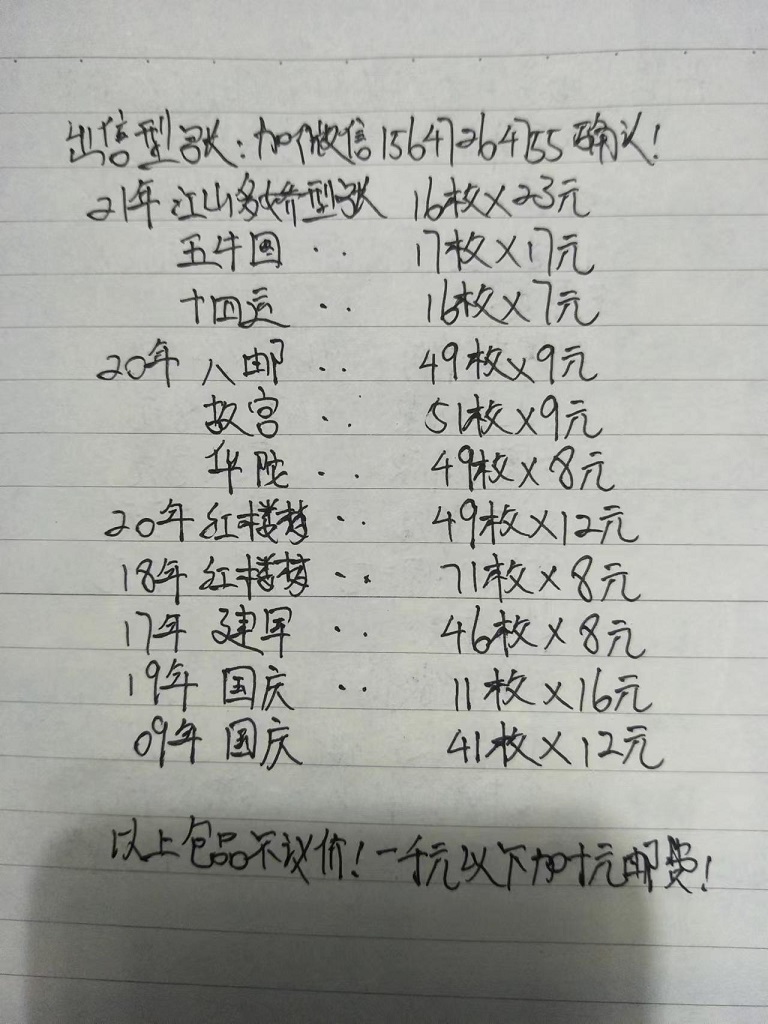 出售型张:加微信15647264755确认!
21年江山多娇型张 16枚×23元
五牛图 ‥ 17枚×17元
十四运 ‥ 16枚×7元
20年 八邮 ‥ 49枚×9元
故宫 ‥ 51枚×9元
华陀 ‥ 49枚×8元
20年 红楼梦 ‥ 49枚×12元
18年 红楼梦 ‥ 71枚×8元
17年 建军 ‥ 46枚×8元
19年 国庆 ‥ 11枚×16元
09年 国庆 41枚×12元
以上包品不议价!一千元以下加十元邮费!